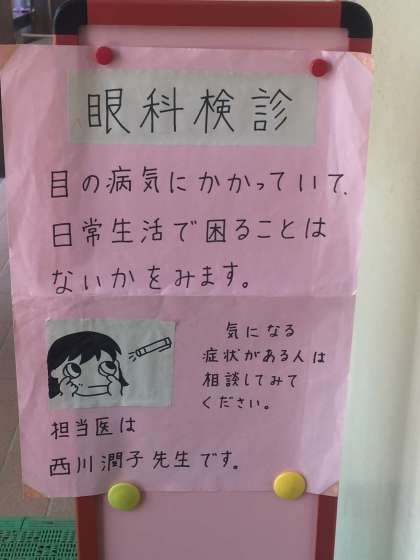 眼科検診
目の病気にかかっていて、
日常生活で困ることは
ないかをみます。
気になる
症状がある人は
相談してみて
ください。
担当医は
西川潤子先生です。